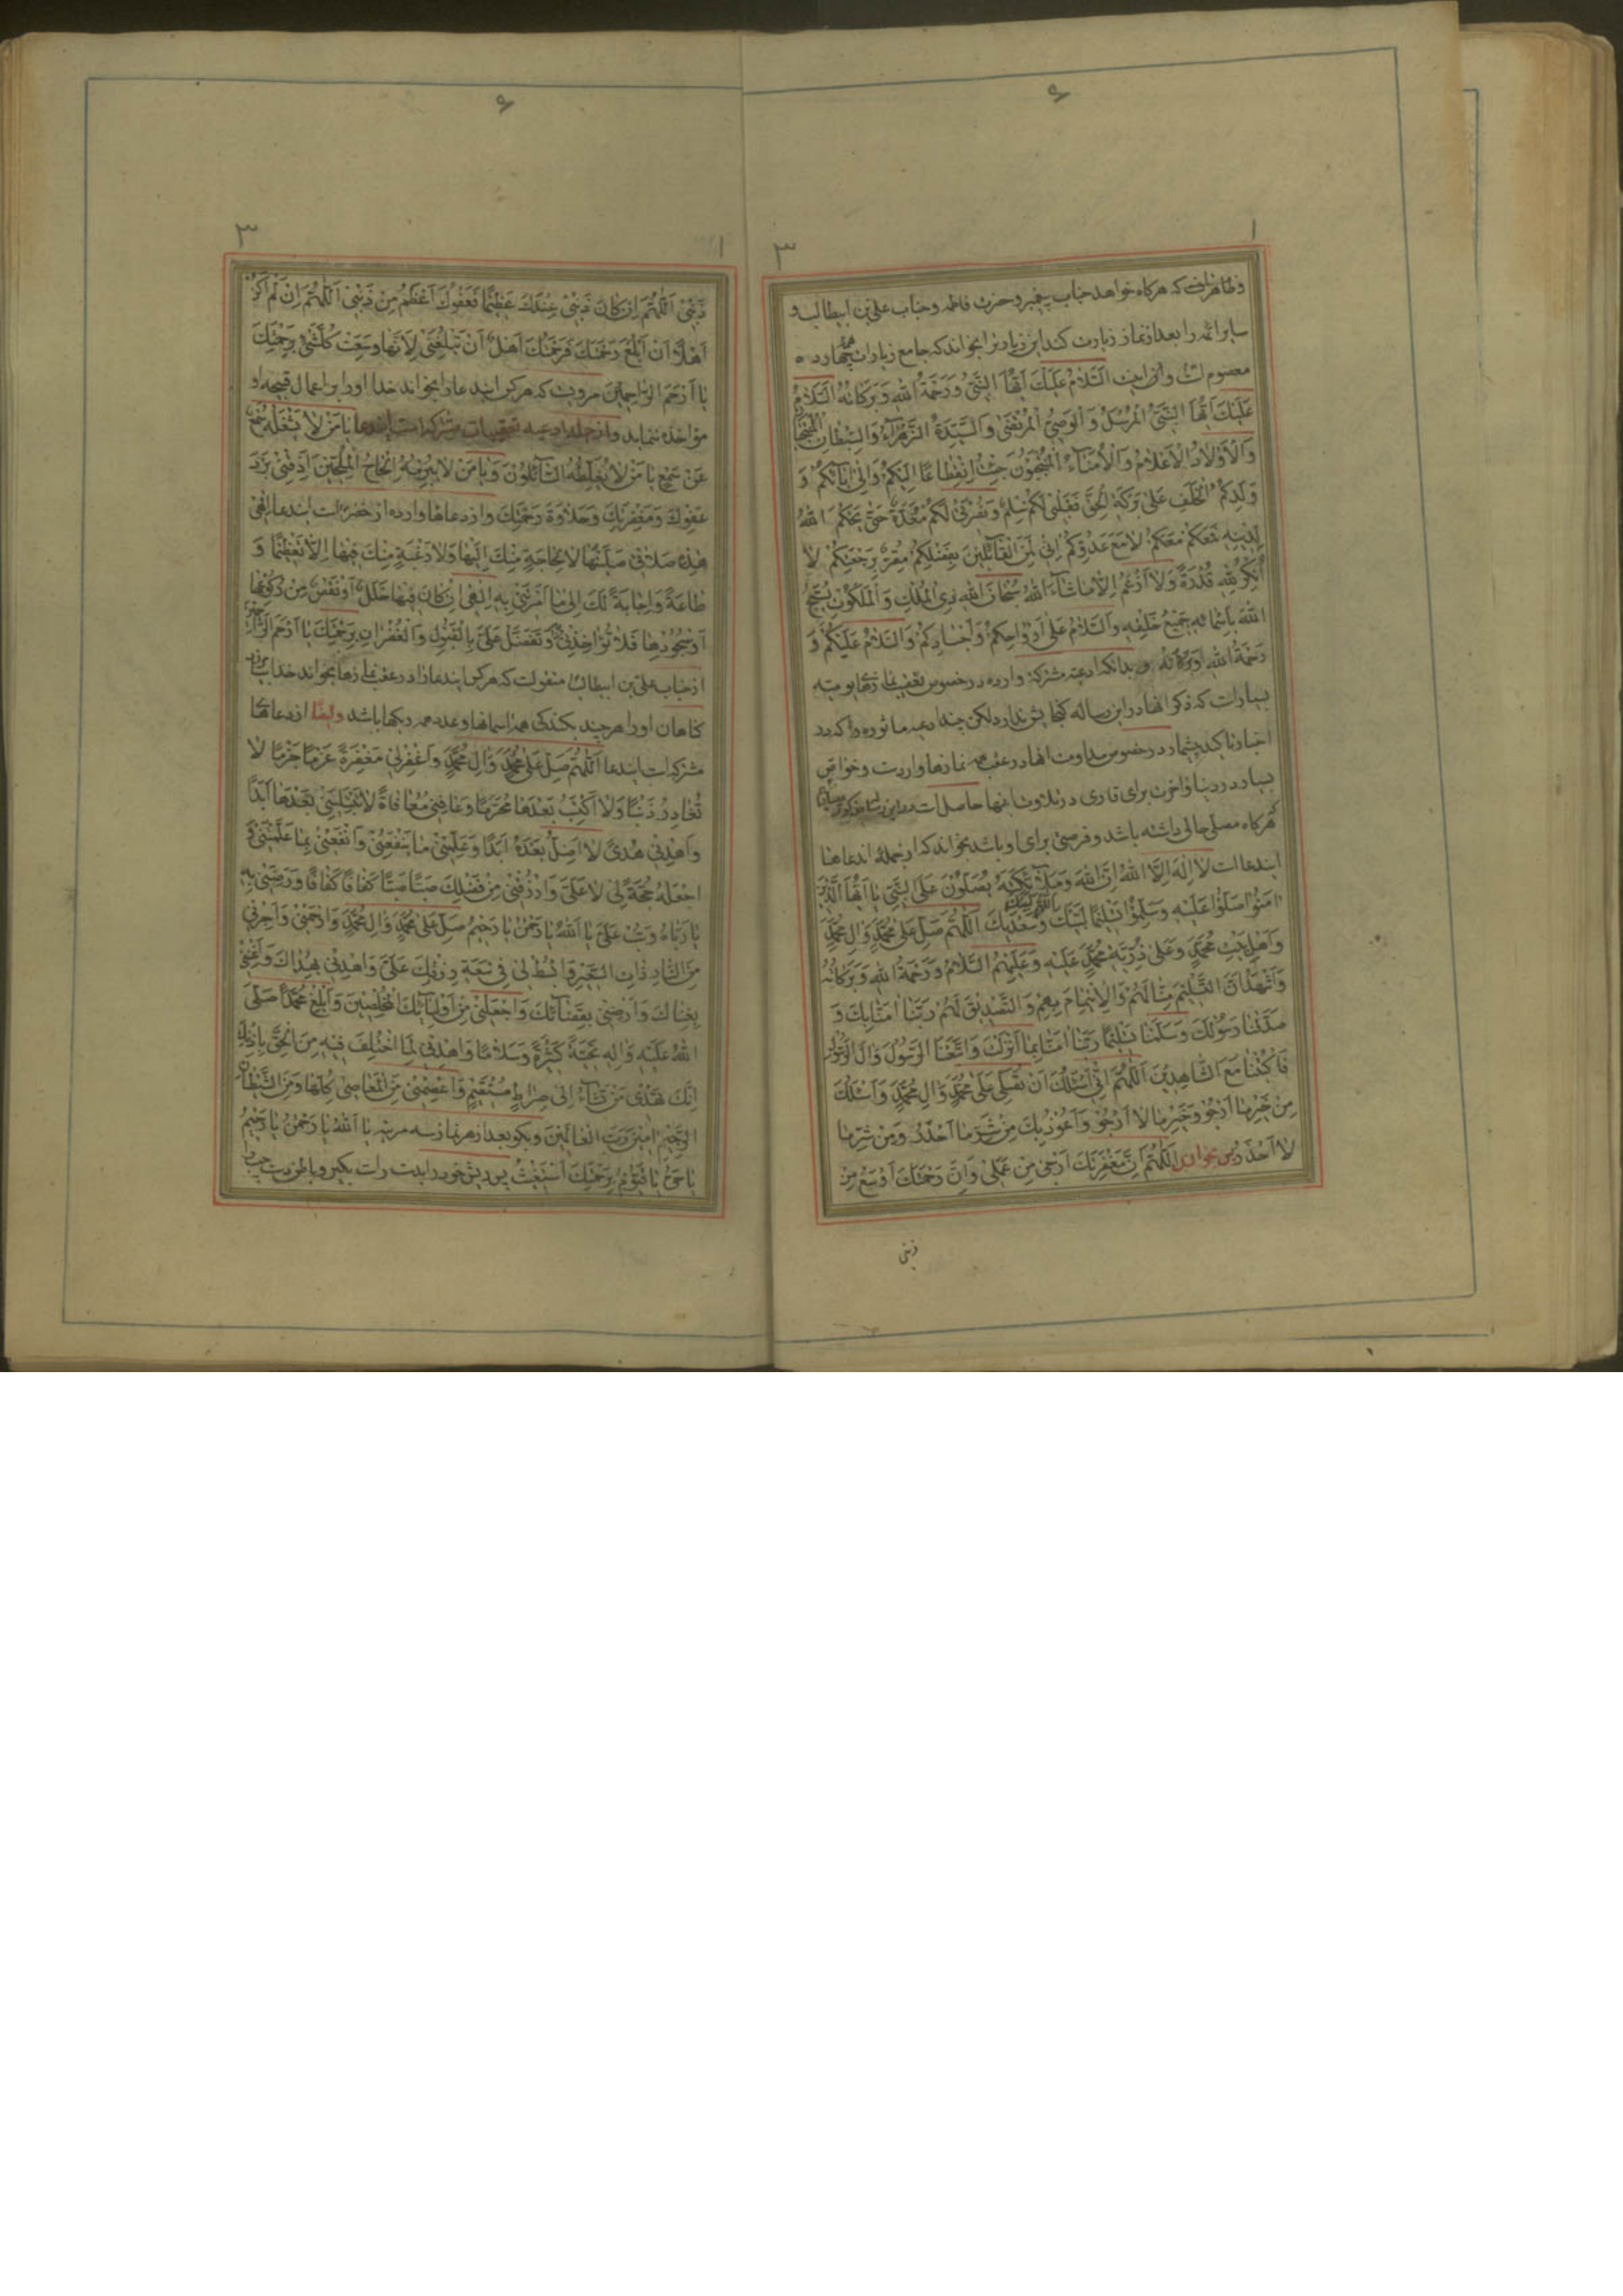 ۶
۱ ۳
و ظاهر است که هرکاه خواهد جناب پیغمبر و حضرت فاطمه و جناب علی بن ابیطالب و
سایر ائمه را بعد از نماز زیارت کند این زیارت را بخواند که جامع زیارات چهارده
معصوم است و آن این است اَلسَّلامُ عَلَیْكَ اَیُّهَا النَّبِیُّ وَرَحْمَةُ اللهِ وَبَرَكاتُهُ اَلسَّلامُ
عَلَیْكَ اَیُّهَا النَّبِیُّ الْمُرْسَلُ وَالْوَصِیُّ الْمُرْتَضى وَالسَّیِّدَةُ الزَّهْرآءُ وَالسِّبْطانِ الْمُنْتَجَبانِ
وَالْاَوْلادُ الْاَعْلامُ وَالْاُمَنآءُ الْمُنْتَجَبُونَ جِئْتُ اِنْقِطاعًا اِلَیْكُمْ وَاِلى اٰبائِكُمْ وَ
وَلَدِكُمُ الْخَلَفِ عَلى بَرَكَةِ الْحَقِّ فَقَلْبی لَكُمْ سِلْمٌ وَنُصْرَتی لَكُمْ مُعَدَّةٌ حَتّى یَحْكُمَ اللهُ
لِدینِهِ فَمَعَكُمْ مَعَكُمْ لا مَعَ عَدُوِّكُمْ اِنّی لَمِنَ الْقآئِلینَ بِفَضْلِكُمْ مُقِرٌّ بِرَجْعَتِكُمْ لا
اُنْكِرُ لِلّهِ قُدْرَةً وَلا اَزْعُمُ اِلّا ما شآءَ اللهُ سُبْحانَ اللهِ ذِی الْمُلْكِ وَالْمَلَكُوتِ یُسَبِّحُ
اللهَ بِاَسْمائِهِ جَمیعُ خَلْقِهِ وَالسَّلامُ عَلى اَرْواحِكُمْ وَاَجْسادِكُمْ وَالسَّلامُ عَلَیْكُمْ وَ
رَحْمَةُ اللهِ وَبَرَكاتُهُ و بدانکه ادعیه مشترکه وارده در خصوص تعقیب نمازهای یومیه
بسیار است که ذکر آنها در این رساله کنجایش ندارد لکن چند ادعیه ماثوره که در
اخبار تاکید بیشمار در خصوص مداومت آنها در عقب همه نمازها وارد است و خواص
بسیار در دنیا و آخرت برای قاری در تلاوت آنها حاصل است در این رساله مذکور میسازم
که هرکاه مصلی حالی داشته باشد و فرصتی برای او باشد بخواند که از جمله آن دعاها
این دعا است لا اِلهَ اِلَّا اللهُ اِنَّ اللهَ وَمَلآئِكَتَهُ یُصَلُّونَ عَلَى النَّبِیِّ یا اَیُّهَا الَّذینَ
اٰمَنُوا صَلُّوا عَلَیْهِ وَسَلِّمُوا تَسْلیمًا لَبَّیْكَ وَسَعْدَیْكَ اَللّهُمَّ صَلِّ عَلى مُحَمَّدٍ وَاٰلِ مُحَمَّدٍ
وَاَهْلِ بَیْتِ مُحَمَّدٍ وَعَلى ذُرِّیَّةِ مُحَمَّدٍ عَلَیْهِ وَعَلَیْهِمُ السَّلامُ وَرَحْمَةُ اللهِ وَبَرَكاتُهُ
وَاَشْهَدُ اَنَّ التَّسْلیمَ مِنّا لَهُمْ وَالْاِئْتِمامَ بِهِمْ وَالتَّصْدیقَ لَهُمْ رَبَّنا اٰمَنّا بِكَ وَ
صَدَّقْنا رَسُولَكَ وَسَلَّمْنا تَسْلیمًا رَبَّنا اٰمَنّا بِما اَنْزَلْتَ وَاتَّبَعْنَا الرَّسُولَ وَاٰلَ الرَّسُولِ
فَاكْتُبْنا مَعَ الشّاهِدینَ اَللّهُمَّ اِنّی اَسْئَلُكَ اَنْ تُصَلِّیَ عَلى مُحَمَّدٍ وَاٰلِ مُحَمَّدٍ وَاَسْئَلُكَ
مِنْ خَیْرِ ما اَرْجُو وَخَیْرِ ما لا اَرْجُو وَاَعُوذُ بِكَ مِنْ شَرِّ ما اَحْذَرُ وَمِنْ شَرِّ ما
لا اَحْذَرُ پس بخوان اَللّهُمَّ اِنَّ مَغْفِرَتَكَ اَرْجى مِنْ عَمَلی وَاِنَّ رَحْمَتَكَ اَوْسَعُ مِنْ
ذنبی
۶
۱ ۳
ذَنْبی اَللّهُمَّ اِنْ كانَ ذَنْبی عِنْدَكَ عَظیمًا فَعَفْوُكَ اَعْظَمُ مِنْ ذَنْبی اَللّهُمَّ اِنْ لَمْ اَكُنْ
اَهْلًا اَنْ اَبْلُغَ رَحْمَتَكَ فَرَحْمَتُكَ اَهْلٌ اَنْ تَبْلُغَنی لِاَنَّها وَسِعَتْ كُلَّ شَیْءٍ بِرَحْمَتِكَ
یا اَرْحَمَ الرّاحِمینَ مرویست که هرکس این دعا را بخواند خدا او را بر اعمال قبیحه او
مؤاخذه ننماید و از جمله ادعیه تعقیبات مشترکه است این دعا یا مَنْ لا یَشْغَلُهُ سَمْعٌ
عَنْ سَمْعٍ یا مَنْ لا یُغَلِّطُهُ السّآئِلُونَ وَیا مَنْ لا یُبْرِمُهُ اِلْحاحُ الْمُلِحّینَ اَذِقْنی بَرْدَ
عَفْوِكَ وَمَغْفِرَتِكَ وَحَلاوَةَ رَحْمَتِكَ و از دعاهای وارده از حضرت است این دعا اِلهی
هذِهِ صَلاتی صَلَّیْتُها لا لِحاجَةٍ مِنْكَ اِلَیْها وَلا رَغْبَةٍ مِنْكَ فیها اِلّا تَعْظیمًا وَ
طاعَةً وَاِجابَةً لَكَ اِلى ما اَمَرْتَنی بِهِ اِلهی اِنْ كانَ فیها خَلَلٌ اَوْ نَقْصٌ مِنْ رُكُوعِها
اَوْ سُجُودِها فَلا تُؤاخِذْنی وَتَفَضَّلْ عَلَیَّ بِالْقَبُولِ وَالْغُفْرانِ بِرَحْمَتِكَ یا اَرْحَمَ الرّاحِمینَ
از جناب علی بن ابیطالب منقولست که هرکس این دعا را در عقب نمازها بخواند خدا بیامرزد
کناهان او را هر چند بکندکی همه آسمانها و عدد همه ریکها باشد وایضا از دعاهای
مشترکه است این دعا اَللّهُمَّ صَلِّ عَلى مُحَمَّدٍ وَاٰلِ مُحَمَّدٍ وَاغْفِرْلی مَغْفِرَةً عَزْمًا جَزْمًا لا
تُغادِرُ ذَنْبًا وَلا اَكْتَسِبُ بَعْدَها مُحَرَّمًا وَعافِنی مُعافاةً لا تَبْتَلینی بَعْدَها اَبَدًا
وَاهْدِنی هُدىً لا اَضِلُّ بَعْدَهُ اَبَدًا وَعَلِّمْنی ما یَنْفَعُنی وَانْفَعْنی بِما عَلَّمْتَنی وَ
اجْعَلْهُ حُجَّةً لی لا عَلَیَّ وَارْزُقْنی مِنْ فَضْلِكَ صَبًّا صَبًّا كَفافًا كَفافًا وَرَضِّنی بِهِ
یا رَبّاهُ وَتُبْ عَلَیَّ یا اَللهُ یا رَحْمنُ یا رَحیمُ صَلِّ عَلى مُحَمَّدٍ وَاٰلِ مُحَمَّدٍ وَارْحَمْنی وَاَجِرْنی
مِنَ النّارِ ذاتِ السَّعیرِ وَابْسُطْ لی فی سَعَةِ رِزْقِكَ عَلَیَّ وَاهْدِنی بِهُداكَ وَاَغْنِنی
بِغِناكَ وَاَرْضِنی بِقَضآئِكَ وَاجْعَلْنی مِنْ اَوْلِیآئِكَ الْمُخْلِصینَ وَاَبْلِغْ مُحَمَّدًا صَلَّى
اللهُ عَلَیْهِ وَاٰلِهِ تَحِیَّةً كَثیرَةً وَسَلامًا وَاهْدِنی لِمَا اخْتُلِفَ فیهِ مِنَ الْحَقِّ بِاِذْنِكَ
اِنَّكَ تَهْدی مَنْ تَشآءُ اِلى صِراطٍ مُسْتَقیمٍ وَاعْصِمْنی مِنَ الْمَعاصی كُلِّها وَمِنَ الشَّیْطانِ
الرَّجیمِ اٰمینَ رَبَّ الْعالَمینَ و بکو بعد از هر نماز سه مرتبه یا اَللهُ یا رَحْمنُ یا رَحیمُ
یا حَیُّ یا قَیُّومُ بِرَحْمَتِكَ اَسْتَغیثُ پس ریش خود را بدست راست بکیر و باطن دست چپ را